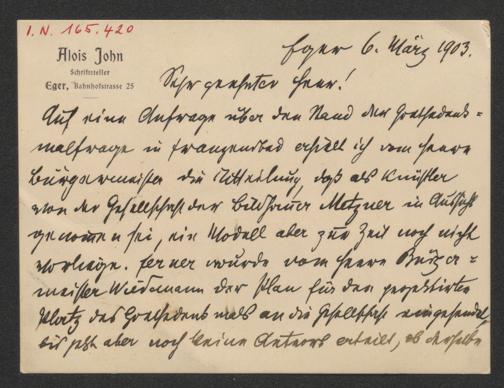 I.N. 165.420
Alois John
Schriftsteller
Eger, Bahnhofstrasse 25
Eger 6. März 1903.
Sehr geehrter Herr!
Auf eine Anfrage über den Stand der Goethedenk-
malfrage in Franzensbad erhielt ich vom Herrn
Bürgermeister die Mitteilung, daß als Künstler
von der Gesellschaft der Bildhauer Metzner in Aussicht
genommen sei, ein Modell aber zur Zeit noch nicht
vorliege. Ferner wurde vom Herrn Bürger-
meister Wiedemann der Plan für den projektirten
Platz des Goethedenkmals an die Gesellschaft eingesendet,
bis jetzt aber noch keine Antwort erteilt, ob derselbe